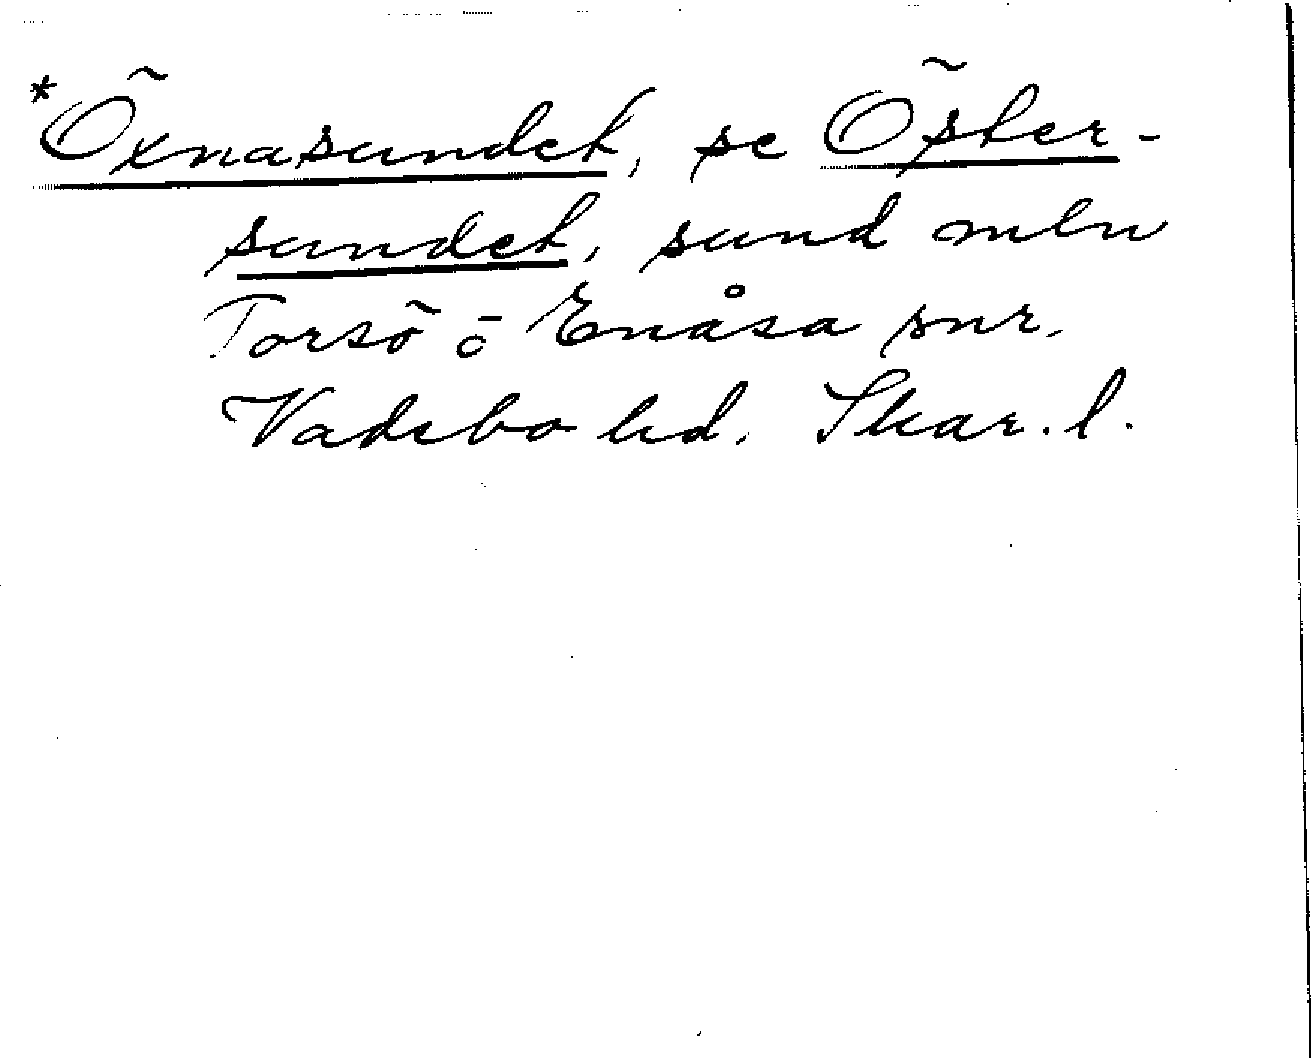 *Öxnasundet, se Öster-
sundet, sund mln
Torsö o Enåsa snr.
Vadsbo hd. Skar. l.